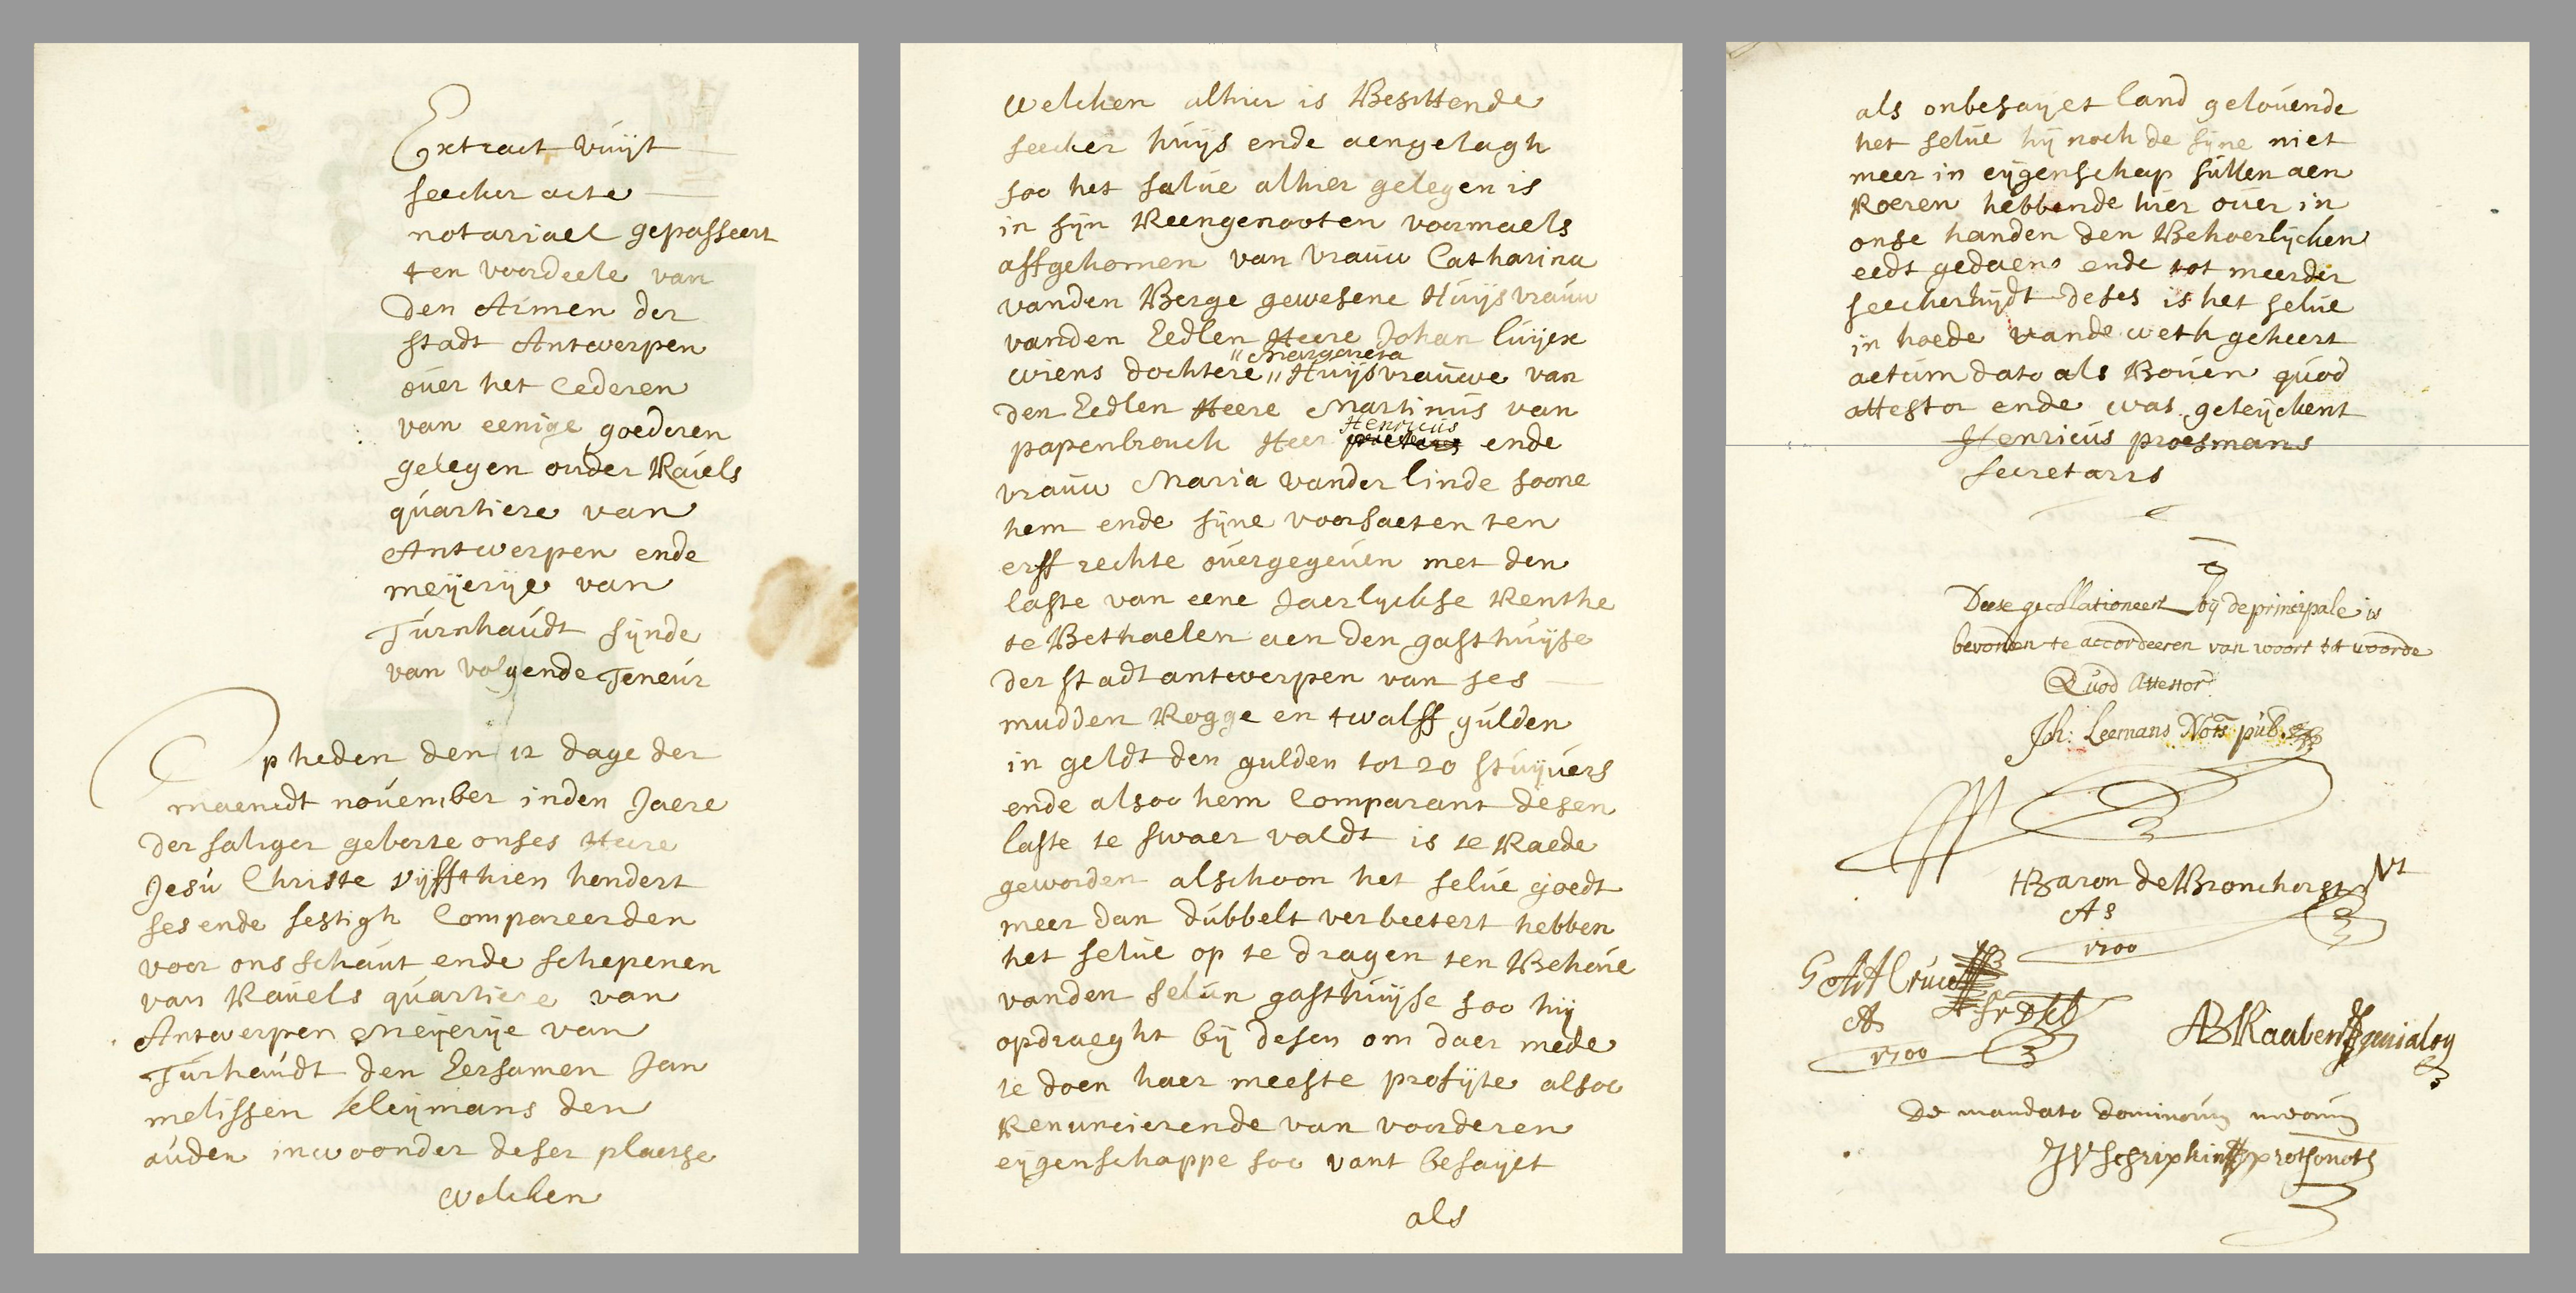 Extract vuijt
seecker acte
notariael gepasseert
ten voordeele van
den Armen der
stadt Antwerpen
over het cederen
van eenige goederen
gelegen onder Ravels
quartiere van
Antwerpen ende
meijerije van
Turnhaudt sijnde
van volgende Teneur
Op heden den 12 dage der
maendt november inden Jaere
der saliger geborte onses Heere
Jesu Christe vijffthien hondert
ses ende sestigh Compareerden
voor ons schaut ende schepenen
van Ravels quartiere van
Antwerpen Meijerije van
Turhaudt den Eersamen Jan
melissen sleijmans den
auden inwoonder deser plaetse
welcken
welcken alhier is Besittende
seecker huijs ende aengelagh
soo het salve alhier gelegen is
in sijn Reengenooten voormaels
affgekomen van vrauw Catharina
vanden Berge gewesene Huijsvrauw
vanden Eedlen Heere Johan luijcx
" Margareta
wiens dochtere " Huijsvrauwe van
den Eedlen Heere Martinus van
Henricus
papenbrouck Heer pieters ende
vrauw Maria vander linde soone
hem ende sijne voorsaeten ten
erff rechte overgegeven met den
laste van eene Jaerlyckse Renthe
te Bethaelen aen den gasthuijse
der stadt antwerpen van ses
mudden Rogge en twalff gulden
in geldt den gulden tot 20 stuijvers
ende alsoo hem Comparant desen
laste te swaer valdt is te Raede
geworden alschoon het selve goedt
meer dan dubbelt verbeetert hebben
het selve op te dragen ten Behove
vanden selven gasthuijse soo hij
opdraeght bij desen om daer mede
te doen haer meeste profijte alsoo
Renuncierende van voorderen
eijgenschappe soo vant besaijet
als
als onbesaijet land gelovende
het selve hij noch de sijne niet
meer in eijgenschap sullen aen
Roeren hebbende hier over in
onse handen den Behoerlijcken
eedt gedaen ende tot meerder
seeckerhijdt deses is het selve
in hoede vande weth gekeert
actum dato als Boven quod
attestor ende was geteijckent
Henricus proesmans
secretarrs
Dese gecollationeert bij de principale is
bevonden te accordeeren van woort tot woorde
Quod Attestor
Jh: Leemans Nots pub
Baron de Bronchorst Vt
As
1700
G A A Cruce
As
1700
AB Raaben genialog
De mandato dominorum meorum
JV Schripkin prothonots